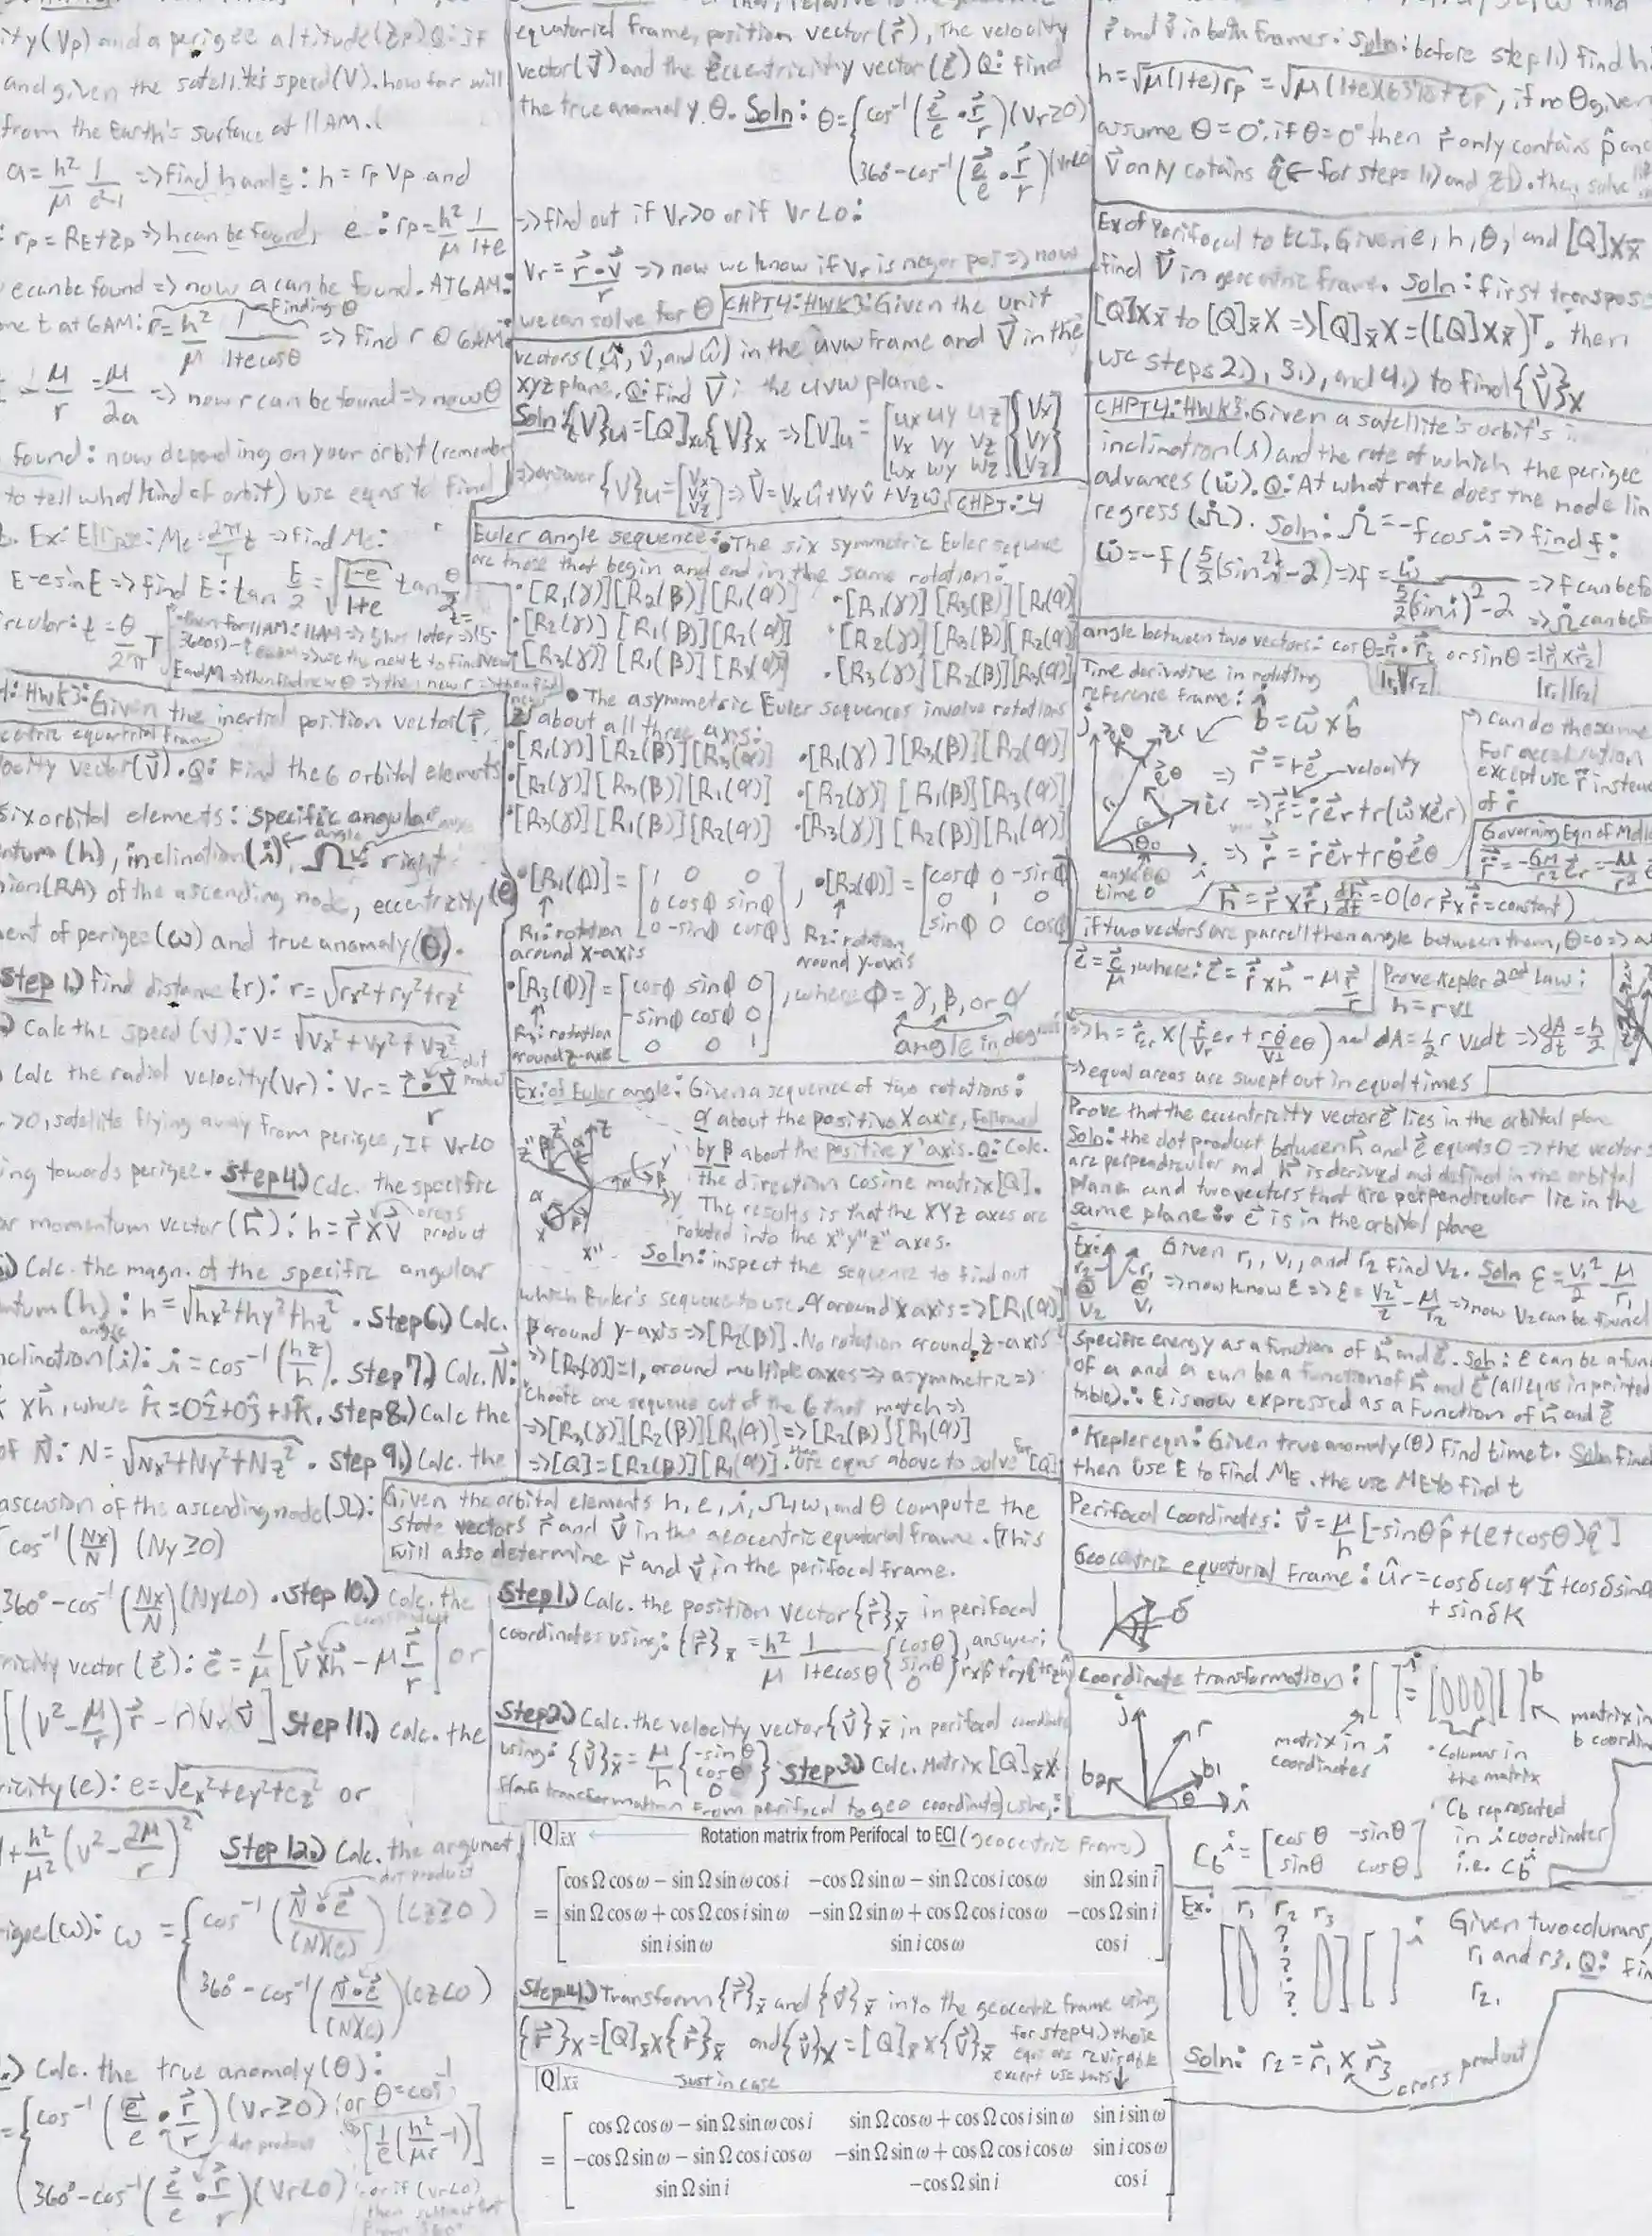 ity(Vp) and a perigee altitude(zp) Q: if
and given the satellite's speed(V). how far will
from the Earth's surface at 11AM.
a = h²/μ 1/e²-1 => find h and e: h = rp Vp and
: rp = RE+zp => h can be found, e: rp = h²/μ 1/1+e
e can be found => now a can be found. AT 6AM:
Finding θ
me t at 6AM: r = h²/μ 1/1+ecosθ => find r @ 6AM:
- μ/r = μ/2a => now r can be found => now θ
found: now depending on your orbit (remember
to tell what kind of orbit) use eqns to find
t. Ex: Ellipse: Me = 2π/T t => find Me:
E-esinE => find E: tan E/2 = √1-e/1+e tan θ/2
circular: t = θ/2π T
4: HWK3: Given the inertial position vector(r⃗,
centric equatorial frame
locity vector(v⃗). Q: Find the 6 orbital elements
six orbital elements: specific angular
ntum (h), inclination(i), Ω: right
nsion(RA) of the ascending node, eccentricity(e)
ment of perigee(ω) and true anomaly(θ).
Step 1.) find distance(r): r = √rx²+ry²+rz²
.) Calc the speed (v): V = √Vx²+Vy²+Vz²
) Calc the radial velocity(Vr): Vr = r⃗•v⃗/r
dot product
r>0, satellite flying away from perigee, If Vr<0
ing towards perigee. Step 4.) Calc. the specific
ar momentum vector (h⃗): h = r⃗ x v⃗
cross product
.) Calc. the magn. of the specific angular
ntum (h): h = √hx²+hy²+hz². Step 6.) Calc.
angle
nclination(i): i = cos⁻¹(hz/h). Step 7.) Calc. N⃗:
x h⃗, where k̂ = 0Î+0ĵ+1k̂. Step 8.) Calc the
of N⃗: N = √Nx²+Ny²+Nz². Step 9.) Calc. the
ascension of the ascending node(Ω):
cos⁻¹(Nx/N) (Ny≥0)
360°-cos⁻¹(Nx/N) (Ny<0). Step 10.) Calc. the
cross product
ricity vector (e⃗): e⃗ = 1/μ [v⃗xh⃗ - μ r⃗/r] or
[(v²-μ/r) r⃗ - r(Vr)v⃗] Step 11.) Calc. the
ricity(e): e = √ex²+ey²+ez² or
1+h²/μ²(v²-2μ/r)² Step 12.) Calc. the argument
dot product
rigee(ω): ω = { cos⁻¹(N⃗•e⃗/(N)(e)) (ez≥0)
360°-cos⁻¹(N⃗•e⃗/(N)(e)) (ez<0)
.) Calc. the true anomaly(θ):
= { cos⁻¹(e⃗/e • r⃗/r) (Vr≥0) or θ=cos⁻¹
[1/e(h²/μr -1)]
dot product
360°-cos⁻¹(e⃗/e • r⃗/r) (Vr<0)
or if (Vr<0)
then subtract that
from 360°
equatorial frame, position vector(r⃗), the velocity
vector(v⃗) and the eccentricity vector(e⃗) Q: find
the true anomaly θ. Soln: θ = { cos⁻¹(e⃗/e • r⃗/r) (Vr≥0)
360°-cos⁻¹(e⃗/e • r⃗/r) (Vr<0)
=> find out if Vr>0 or if Vr<0:
Vr = r⃗•v⃗/r => now we know if Vr is neg or pos => now
we can solve for θ
CHPT4: HWK3: Given the unit
vectors(û, v̂, and ŵ) in the uvw frame and V⃗ in the
xyz plane. Q: Find V⃗ in the uvw plane.
Soln: {V}u = [Q]xu{V}x => [V]u = [ux uy uz / vx vy vz / wx wy wz]{Vx / Vy / Vz}
=> answer {V}u = [Vx / Vy / Vz] => V⃗ = Vxû+Vyv̂+Vzŵ
CHPT: 4
Euler angle sequence: • The six symmetric Euler sequence
are those that begin and end in the same rotation:
•[R1(γ)][R2(β)][R1(α)] •[R1(γ)][R3(β)][R1(α)]
•[R2(γ)][R1(β)][R2(α)] •[R2(γ)][R3(β)][R2(α)]
•[R3(γ)][R1(β)][R3(α)] •[R3(γ)][R2(β)][R3(α)]
• The asymmetric Euler sequences involve rotations
about all three axis:
•[R1(γ)][R2(β)][R3(α)] •[R1(γ)][R3(β)][R2(α)]
•[R2(γ)][R3(β)][R1(α)] •[R2(γ)][R1(β)][R3(α)]
•[R3(γ)][R1(β)][R2(α)] •[R3(γ)][R2(β)][R1(α)]
•[R1(φ)] = [1 0 0 / 0 cosφ sinφ / 0 -sinφ cosφ], •[R2(φ)] = [cosφ 0 -sinφ / 0 1 0 / sinφ 0 cosφ]
R1: rotation around x-axis
R2: rotation around y-axis
•[R3(φ)] = [cosφ sinφ 0 / -sinφ cosφ 0 / 0 0 1], where φ = γ, β, or α
R3: rotation around z-axis
angle in degrees
Ex: of Euler angle: Given a sequence of two rotations:
α about the positive X axis, followed
by β about the positive y' axis. Q: Calc.
the direction cosine matrix [Q].
The results is that the XYZ axes are
rotated into the x"y"z" axes.
Soln: inspect the sequence to find out
which Euler's sequence to use. α around x axis => [R1(α)]
β around y-axis => [R2(β)]. No rotation around z-axis
=> [R3(γ)]=1, around multiple axes => asymmetric =>
choose one sequence out of the 6 that match =>
=> [R3(γ)][R2(β)][R1(α)] => [R2(β)][R1(α)]
=> [Q] = [R2(β)][R1(α)]. then use eqns above to solve for [Q]
Given the orbital elements h, e, i, Ω, ω, and θ compute the
state vectors r⃗ and v⃗ in the geocentric equatorial frame. (This
will also determine r⃗ and v⃗ in the perifocal frame.
Step 1.) Calc. the position vector {r⃗}x̄ in perifocal
coordinates using: {r⃗}x̄ = h²/μ 1/1+ecosθ {cosθ / sinθ / 0}, answer:
Step 2.) Calc. the velocity vector {v⃗}x̄ in perifocal coordinate
using: {v⃗}x̄ = μ/h {-sinθ / cosθ / 0} Step 3.) Calc. Matrix [Q]x̄X
transformation from perifocal to geo coordinates using:
[Q]x̄X ← Rotation matrix from Perifocal to ECI (geocentric frame)
= [cos Ω cos ω − sin Ω sin ω cos i −cos Ω sin ω − sin Ω cos i cos ω sin Ω sin i
sin Ω cos ω + cos Ω cos i sin ω −sin Ω sin ω + cos Ω cos i cos ω −cos Ω sin i
sin i sin ω sin i cos ω cos i]
Step 4.) Transform {r⃗}x̄ and {v⃗}x̄ into the geocentric frame using
{r⃗}X = [Q]x̄X{r⃗}x̄ and {v⃗}X = [Q]x̄X{v⃗}x̄
for step 4.) these
eqns are revisable
except use this ↓
[Q]Xx̄ Just in case
= [cos Ω cos ω − sin Ω sin ω cos i sin Ω cos ω + cos Ω cos i sin ω sin i sin ω
−cos Ω sin ω − sin Ω cos i cos ω −sin Ω sin ω + cos Ω cos i cos ω sin i cos ω
sin Ω sin i −cos Ω sin i cos i]
r⃗ and v⃗ in both frames: Soln: before step 1.) find h.
h = √μ(1+e)rp = √μ(1+e)(6378+zp), if no θ given
assume θ = 0°. if θ = 0° then r⃗ only contains p̂ and
v⃗ only cotains q̂ ← for steps 1.) and 2.). then solve
Ex of Perifocal to ECI. Given e, h, θ, and [Q]Xx̄
find V⃗ in geocentric frame. Soln: first transpose
[Q]Xx̄ to [Q]x̄X => [Q]x̄X = ([Q]Xx̄)ᵀ. then
use steps 2.), 3.), and 4.) to find {V⃗}X
CHPT4: HWK3. Given a satellite's orbit's
inclination(i) and the rate of which the perigee
advances (ω̇). Q: At what rate does the node line
regress(Ω̇). Soln: Ω̇ = -f cos i => find f:
ω̇ = -f(5/2(sin²i)-2) => f = ω̇/5/2(sin i)²-2 => f can be fo
=> Ω̇ can be fo
angle between two vectors: cosθ = r⃗1•r⃗2/|r1||r2| or sinθ = |r⃗1 x r⃗2|/|r1||r2|
Time derivative in rotating
reference frame:
b̂ = ω⃗ x b̂
=> r⃗ = r e⃗
velocity
=> r⃗ = ṙ e⃗r + r(ω⃗ x e⃗r)
=> r⃗ = ṙ e⃗r + r θ̇ e⃗θ
angle @ time 0
=> can do the same
for acceleration
except use r̈ instead
of ṙ
Governing Eqn of Motion
h⃗ = r⃗ x r⃗, dh⃗/dt = 0 (or r⃗ x r⃗ = constant)
if two vectors are parrell then angle between them, θ=0 =>
e⃗ = c⃗/μ, where: c⃗ = r⃗ x h⃗ - μ r⃗/r
Prove Kepler 2nd Law:
h = r v⊥
=> h = r er x (ṙ/Vr er + rθ̇/V⊥ eθ) and dA = ½ r V⊥ dt => dA/dt = h/2
=> equal areas are swept out in equal times
Prove that the eccentricity vector e⃗ lies in the orbital plane
Soln: the dot product between h⃗ and e⃗ equals 0 => the vectors
are perpendicular and h⃗ is derived and defined in the orbital
plane and two vectors that are perpendicular lie in the
same plane ∴ e⃗ is in the orbital plane
Ex: Given r1, v1, and r2 find v2. Soln ε = v1²/2 - μ/r1
=> now know ε => ε = v2²/2 - μ/r2 => now v2 can be found
Specific energy as a function of h⃗ and e⃗. Soln: ε can be a func
of a and a can be a function of h⃗ and e⃗ (all eqns in printed
table). ∴ ε is now expressed as a function of h⃗ and e⃗
• Kepler eqn: Given true anomaly(θ) find time t. Soln find
then use E to find ME. the use ME to find t
Perifocal Coordinates: v⃗ = μ/h [-sinθ p̂ + (e+cosθ)q̂]
Geocentric equatorial Frame: ûr = cosδ cosα Î + cosδ sinα
+ sinδ K
Coordinate transformation: [ ]ⁱ = [000][ ]ᵇ
matrix in i coordinates
• Columns in the matrix
matrix in b coordin
Cb represented
in i coordinates
i.e. Cbⁱ
Cbⁱ = [cosθ -sinθ / sinθ cosθ]
Ex: r1 r2 r3
? ? ? ?
Given two columns,
r1 and r3. Q: Fin
r2.
Soln: r2 = r⃗1 x r⃗3
cross product